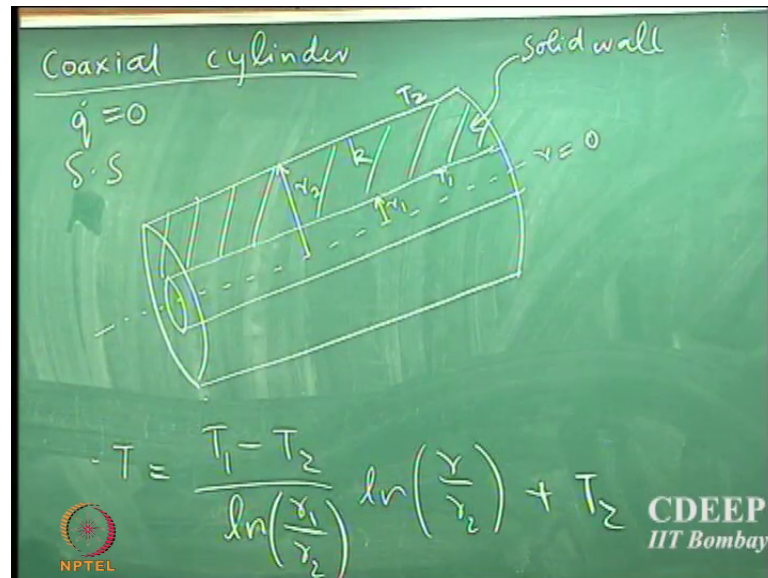 Coaxial cylinder
solid wall
q̇ = 0
S.S
T₂
k
r = 0
r₂
r₁
T₁
T = (T₁ - T₂) / ln(r₁/r₂) ln(r/r₂) + T₂
CDEEP
IIT Bombay
NPTEL